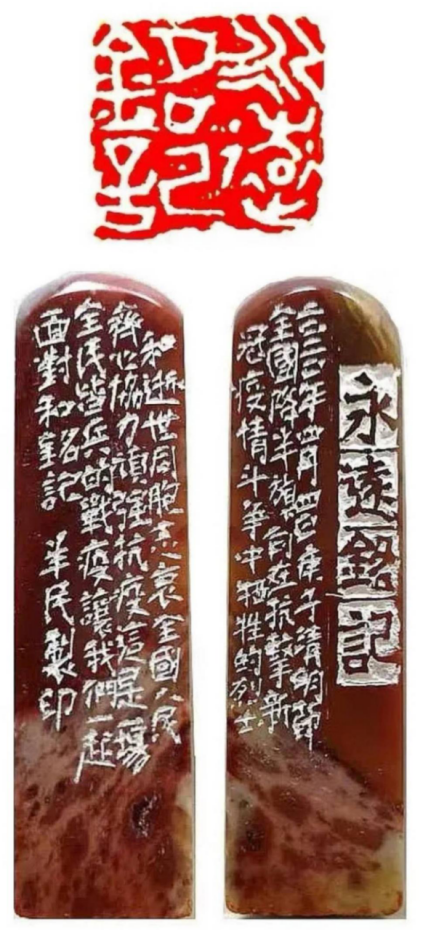 永遠
銘記
永遠銘記
二〇二〇年四月四日庚子清明節
全國降半旗 向在抗擊新
冠疫情斗爭中犧牲的烈士
和逝世同胞志哀全國人民
齊心協力頑強抗疫這是一場
全民皆兵的戰疫讓我們一起
面對和銘記 半民製印